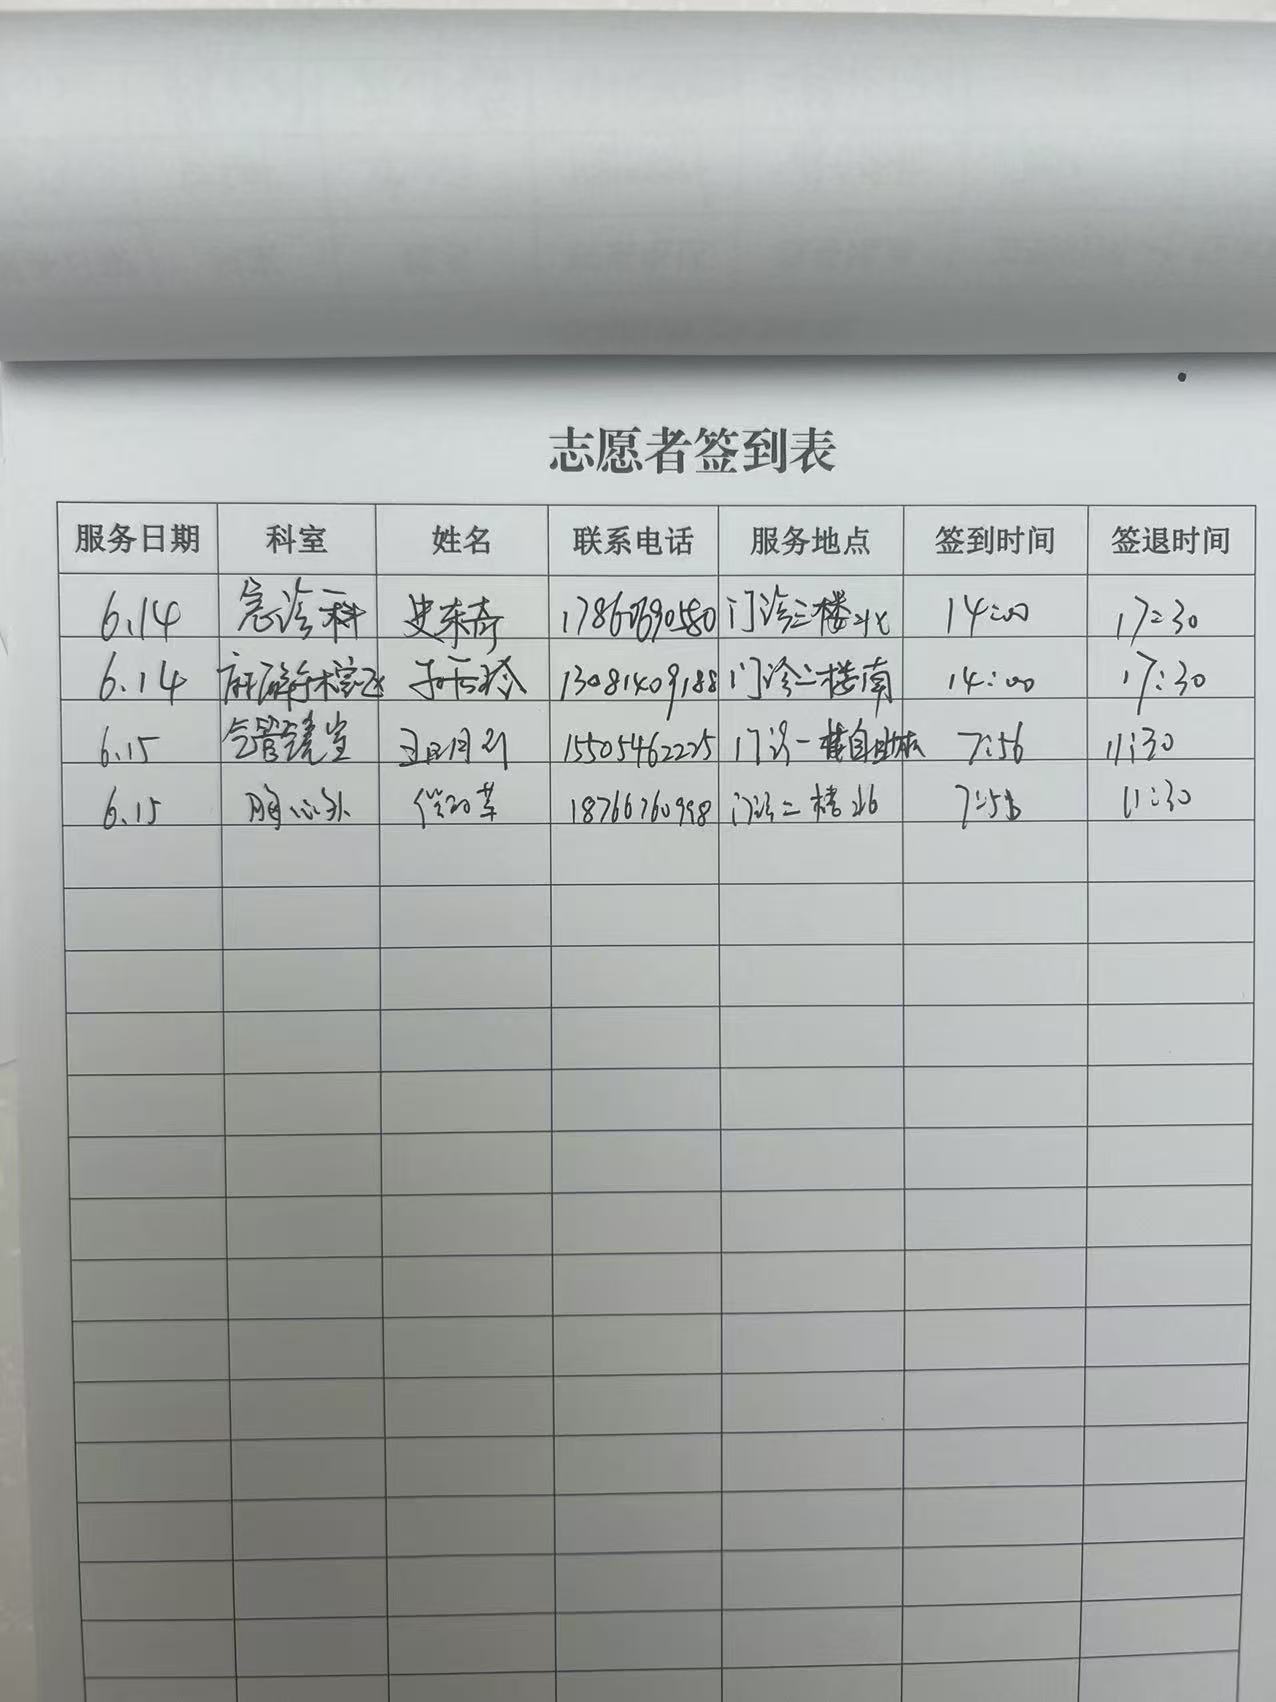 志愿者签到表
服务日期 科室 姓名 联系电话 服务地点 签到时间 签退时间
6.14 急诊科 史东奇 17860690580 门诊三楼北 14:00 17:30
6.14 13081409188 门诊二楼南 14:00 17:30
6.15 气管镜室 15505462225 门诊一楼自助机 7:56 11:30
6.15 胸心外 18766760998 门诊二楼北 11:30